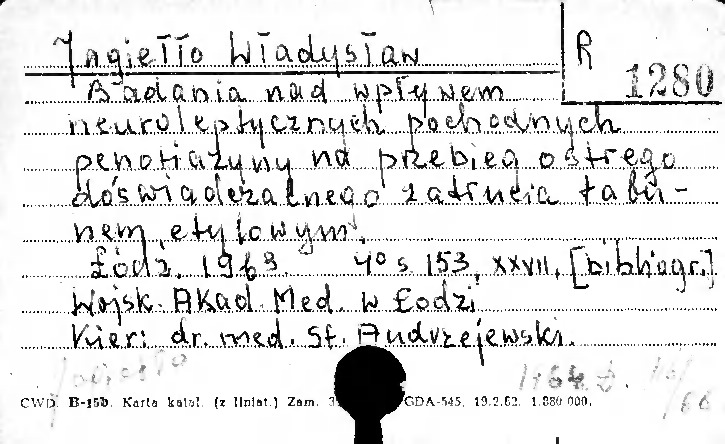 Jagiełło Władysław
R 1280
Badania nad wpływem
neuroleptycznych pochodnych
penotiazyny na przebieg ostrego
doświadczalnego zatrucia tabu-
nem etylowym.
Łódź. 1963. 4° s. 153, XXVII, [bibliogr.]
Wojsk. Akad. Med. w Łodzi
Kier: dr. med. St. Andrzejewski.
CWD. B-15b. Karta katal. (z liniat.) Zam. GDA-545. 19.2.62. 1.880 000.